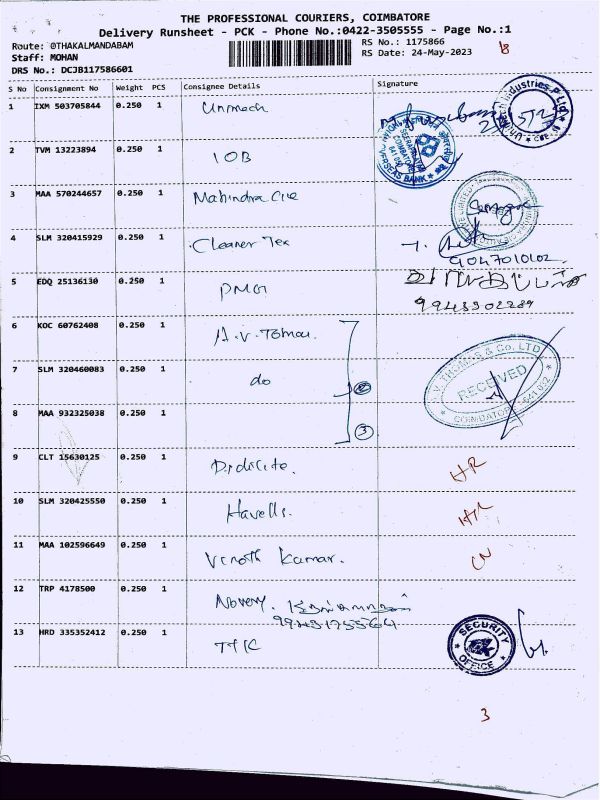 THE PROFESSIONAL COURIERS, COIMBATORE
Delivery Runsheet - PCK - Phone No.:0422-3505555 - Page No.:1
Route: @THAKALMANDABAM RS No.: 1175866
Staff: MOHAN RS Date: 24-May-2023
DRS No.: DCJB117586601
S No Consignment No Weight PCS Consignee Details Signature
1 IXM 503705844 0.250 1 Unmech
2 TVM 13223894 0.250 1 IOB
3 MAA 570244657 0.250 1 Mahindra CIE
4 SLM 320415929 0.250 1 Cleaner Tex
9047010102
5 EDQ 25136130 0.250 1 PMG
9943302289
6 KOC 60762408 0.250 1 A.V. Thomas
7 SLM 320460083 0.250 1 do
RECEIVED
8 MAA 932325038 0.250 1 3
9 CLT 15630125 0.250 1
10 SLM 320425550 0.250 1 Havells.
11 MAA 102596649 0.250 1 Vinoth Kumar.
12 TRP 4178500 0.250 1
13 HRD 335352412 0.250 1
SECURITY
OFFICE
3